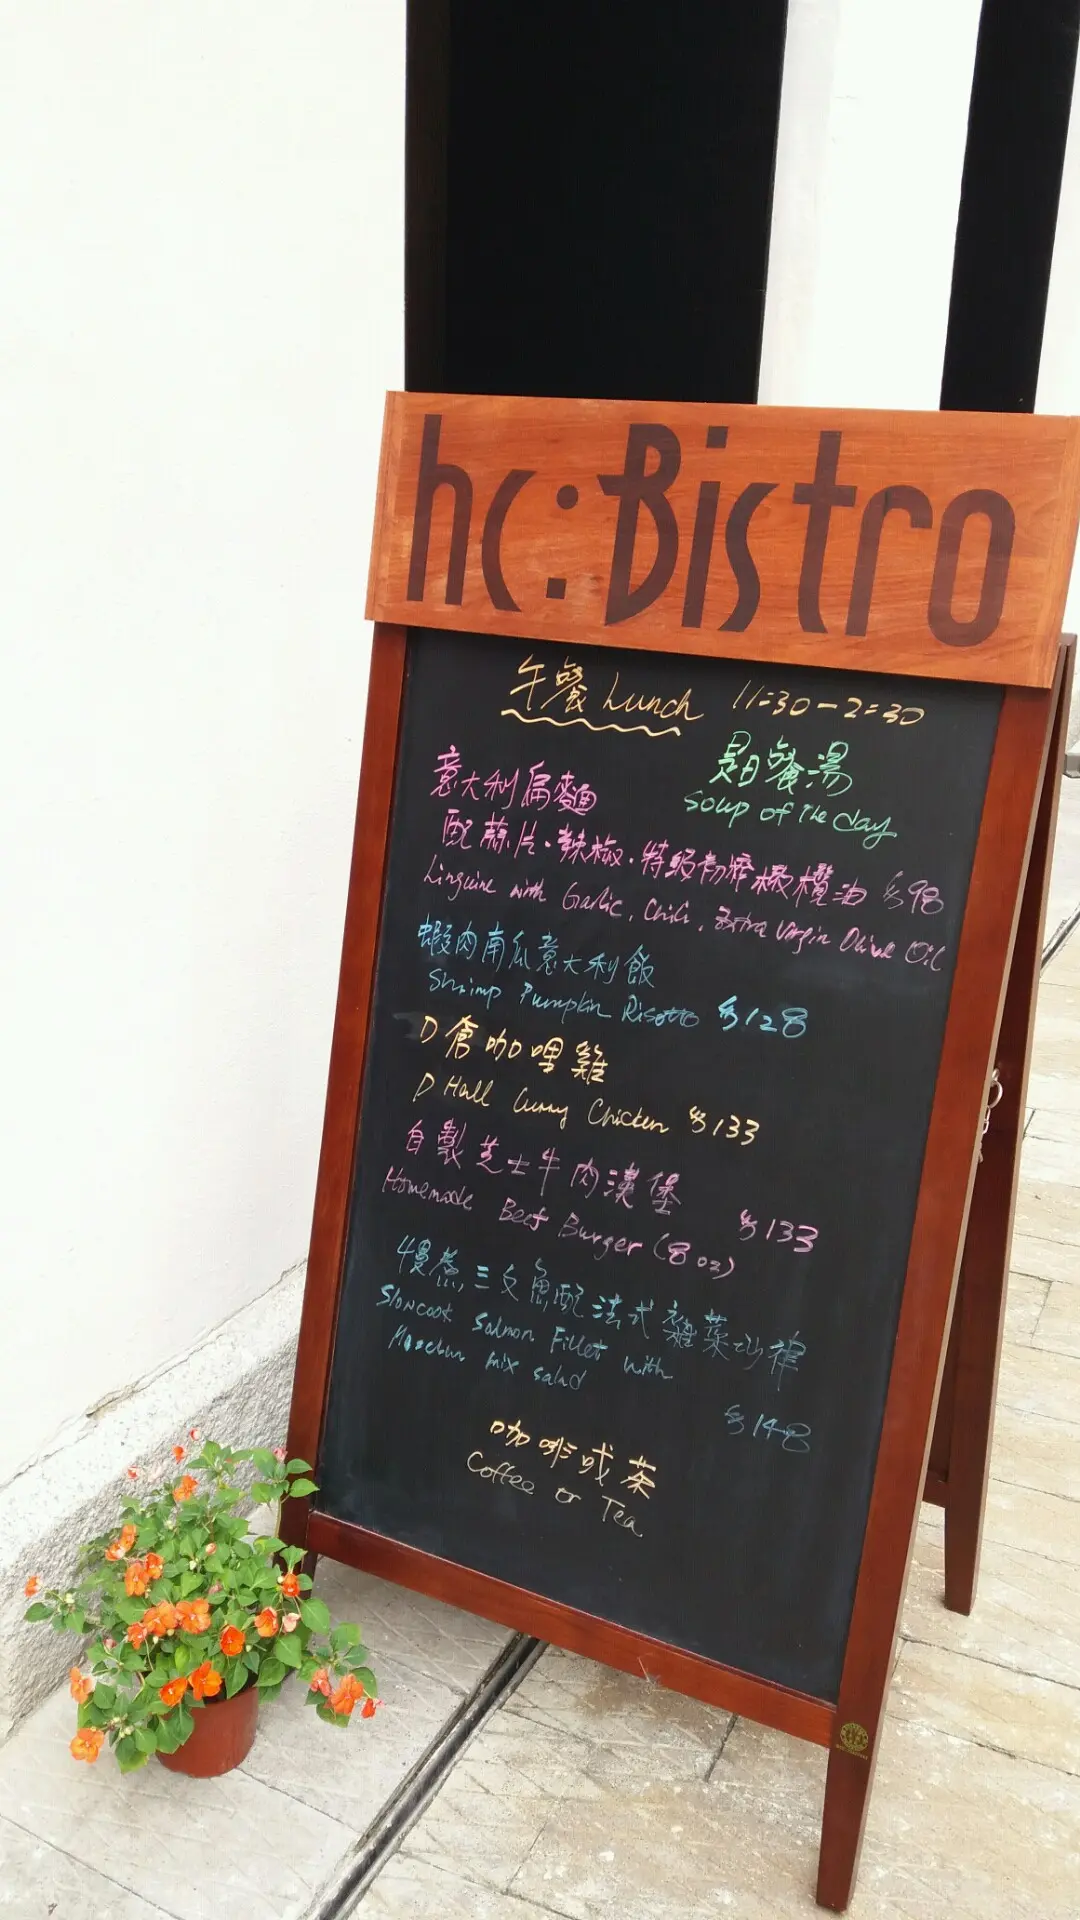 hc:Bistro
午餐 Lunch 11:30-2:30
是日餐湯
Soup of the day
意大利扁麵
配蒜片·辣椒·特級初榨橄欖油 $98
Linguine with Garlic, Chili, Extra Virgin Olive Oil
蝦肉南瓜意大利飯
Shrimp Pumpkin Risotto $128
D倉咖哩雞
D Hall Curry Chicken $133
自製芝士牛肉漢堡
Homemade Beef Burger (8oz) $133
慢煮三文魚配法式雜菜沙律
Slowcook Salmon Fillet with
mix salad
$148
咖啡或茶
Coffee or Tea